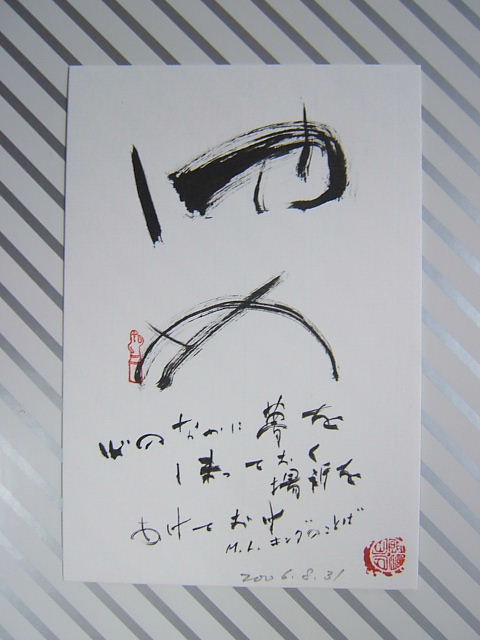 心のなかに夢を
しまっておく
場所を
あけておけ
M.L.キングのことば
2006.8.31